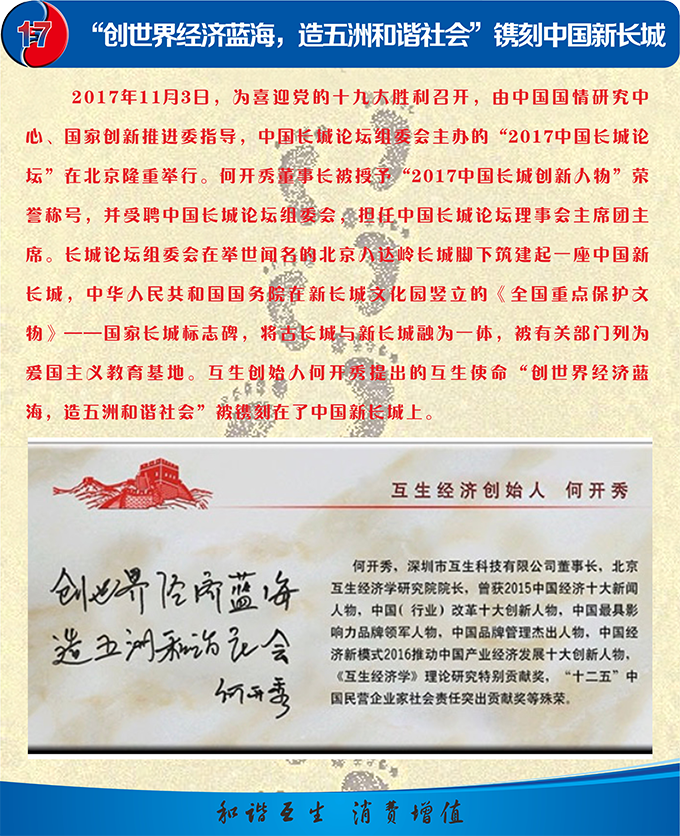 17
“创世界经济蓝海，造五洲和谐社会”镌刻中国新长城
2017年11月3日，为喜迎党的十九大胜利召开，由中国国情研究中
心、国家创新推进委指导，中国长城论坛组委会主办的“2017中国长城论
坛”在北京隆重举行。何开秀董事长被授予“2017中国长城创新人物”荣
誉称号，并受聘中国长城论坛组委会，担任中国长城论坛理事会主席团主
席。长城论坛组委会在举世闻名的北京八达岭长城脚下筑建起一座中国新
长城，中华人民共和国国务院在新长城文化园竖立的《全国重点保护文
物》——国家长城标志碑，将古长城与新长城融为一体，被有关部门列为
爱国主义教育基地。互生创始人何开秀提出的互生使命“创世界经济蓝
海，造五洲和谐社会”被镌刻在了中国新长城上。
互生经济创始人 何开秀
创世界经济蓝海
造五洲和谐社会
何开秀
何开秀，深圳市互生科技有限公司董事长，北京
互生经济学研究院院长，曾获2015中国经济十大新闻
人物，中国（行业）改革十大创新人物，中国最具影
响力品牌领军人物，中国品牌管理杰出人物，中国经
济新模式2016推动中国产业经济发展十大创新人物，
《互生经济学》理论研究特别贡献奖，“十二五”中
国民营企业家社会责任突出贡献奖等殊荣。
和谐互生 消费增值